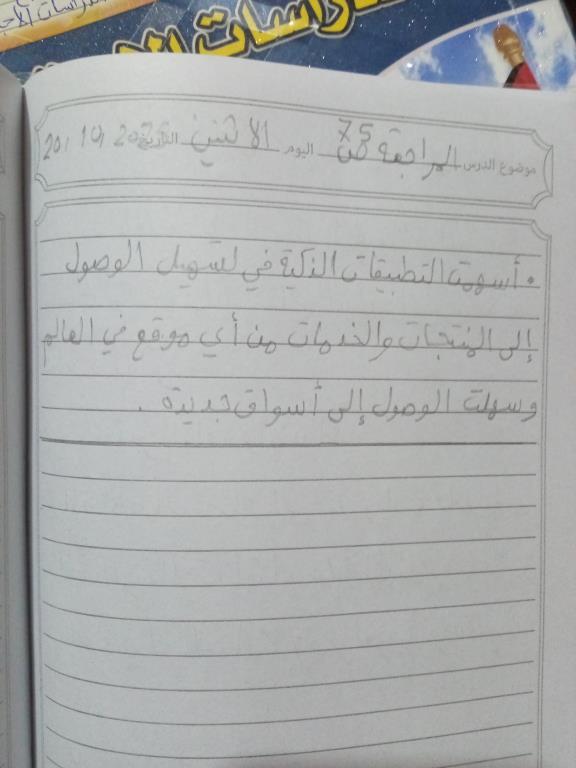 الدراسات الاج
موضوع الدرس المراجعة ص 75 اليوم الاثنين التاريخ 20, 10, 202
• أسهمت التطبيقات الذكية في تسهيل الوصول
إلى المنتجات والخدمات من أي موقع في العالم
وسهلت الوصول إلى أسواق جديدة .